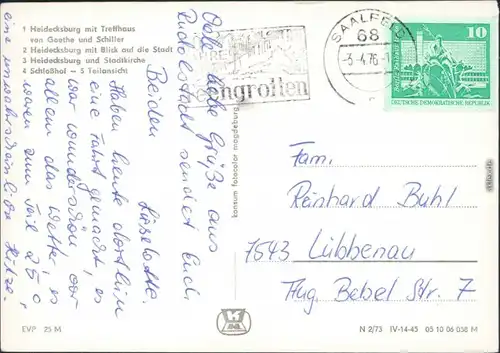 1 Heidecksburg mit Treffhaus
von Goethe und Schiller
2 Heidecksburg mit Blick auf die Stadt
3 Heidecksburg und Stadtkirche
4 Schloßhof – 5 Teilansicht
liebe Grüße aus
Rudolstadt sendet Euch
Beiden
Lieselotte.
Haben heute dorthin
eine Fahrt gemacht, es
war wunderschön vor
allem das Wetter, es
waren zum Teil 25°,
eine unwahrscheinliche Hitze.
EVP 25 M
konsum fotocolor magdeburg
Feengrotten
SAALFELD
68
-3.-4.76-1
10
DEUTSCHE DEMOKRATISCHE REPUBLIK
Fam.
Reinhard Buhl
7543 Lübbenau
Aug. Bebel Str. 7
N 2/73 IV-14-45 05 10 06 038 M